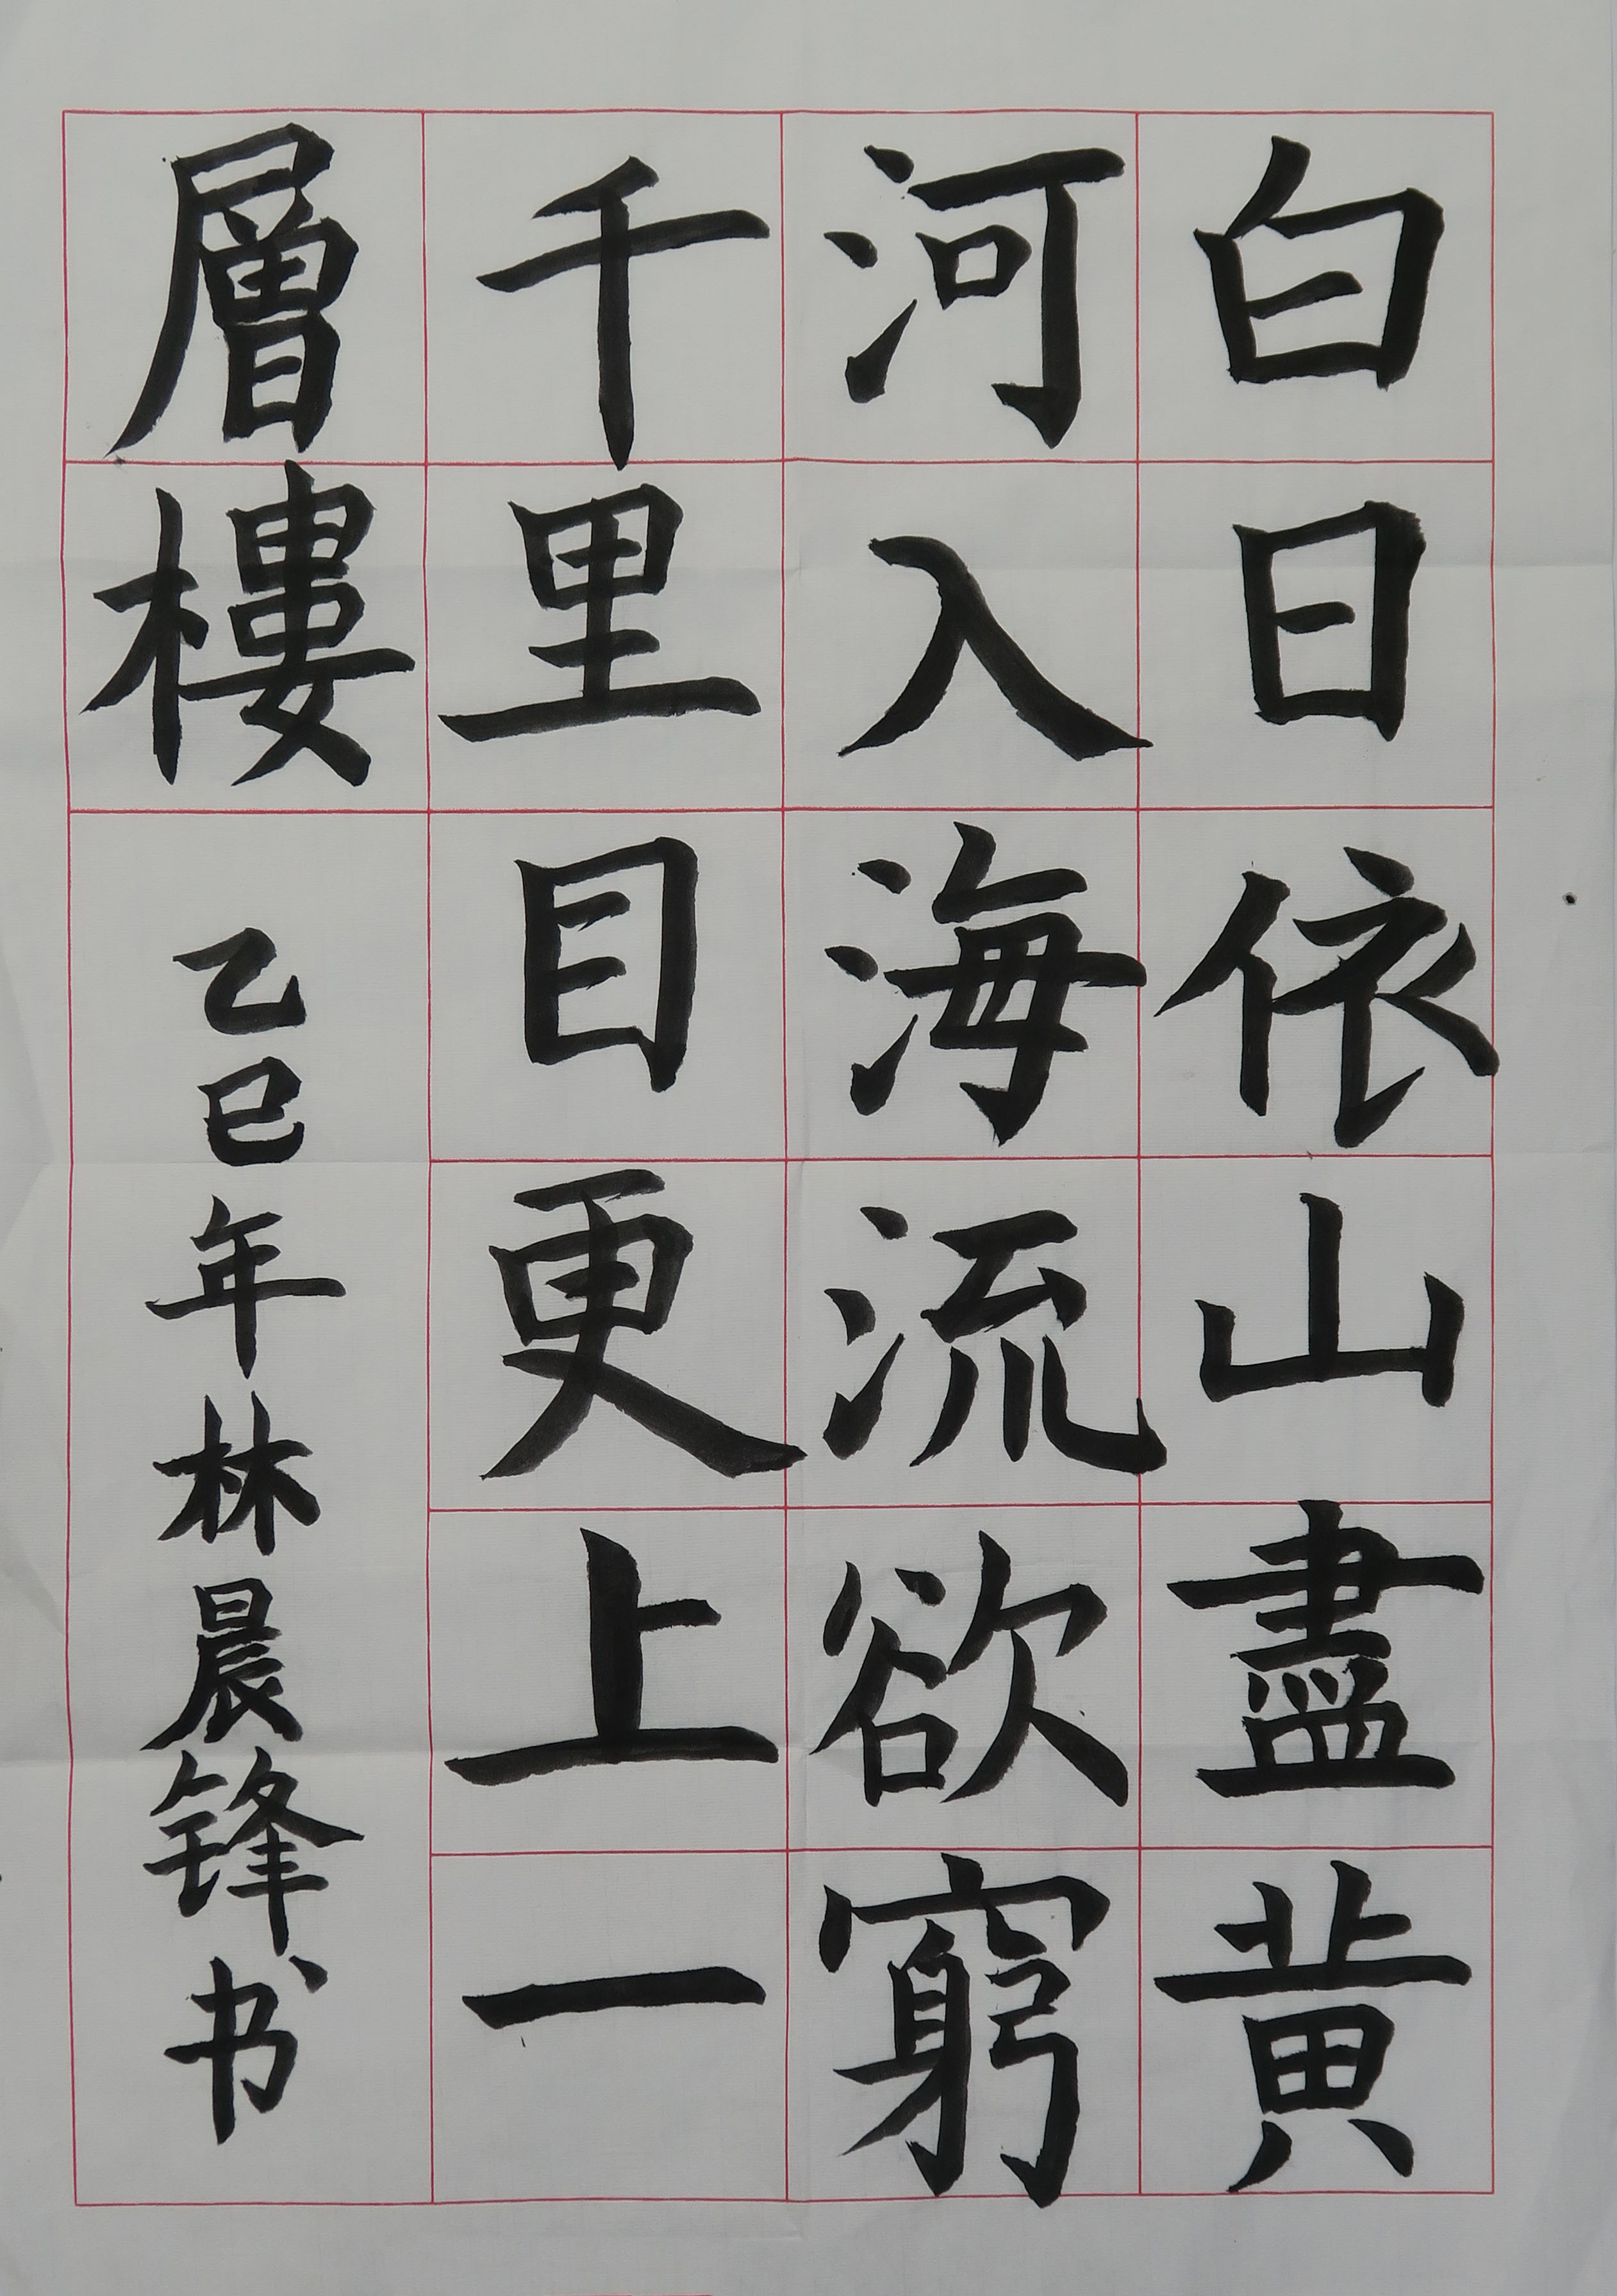 白日依山盡黄
河入海流欲窮
千里目更上一
層樓
乙巳年林晨锋书